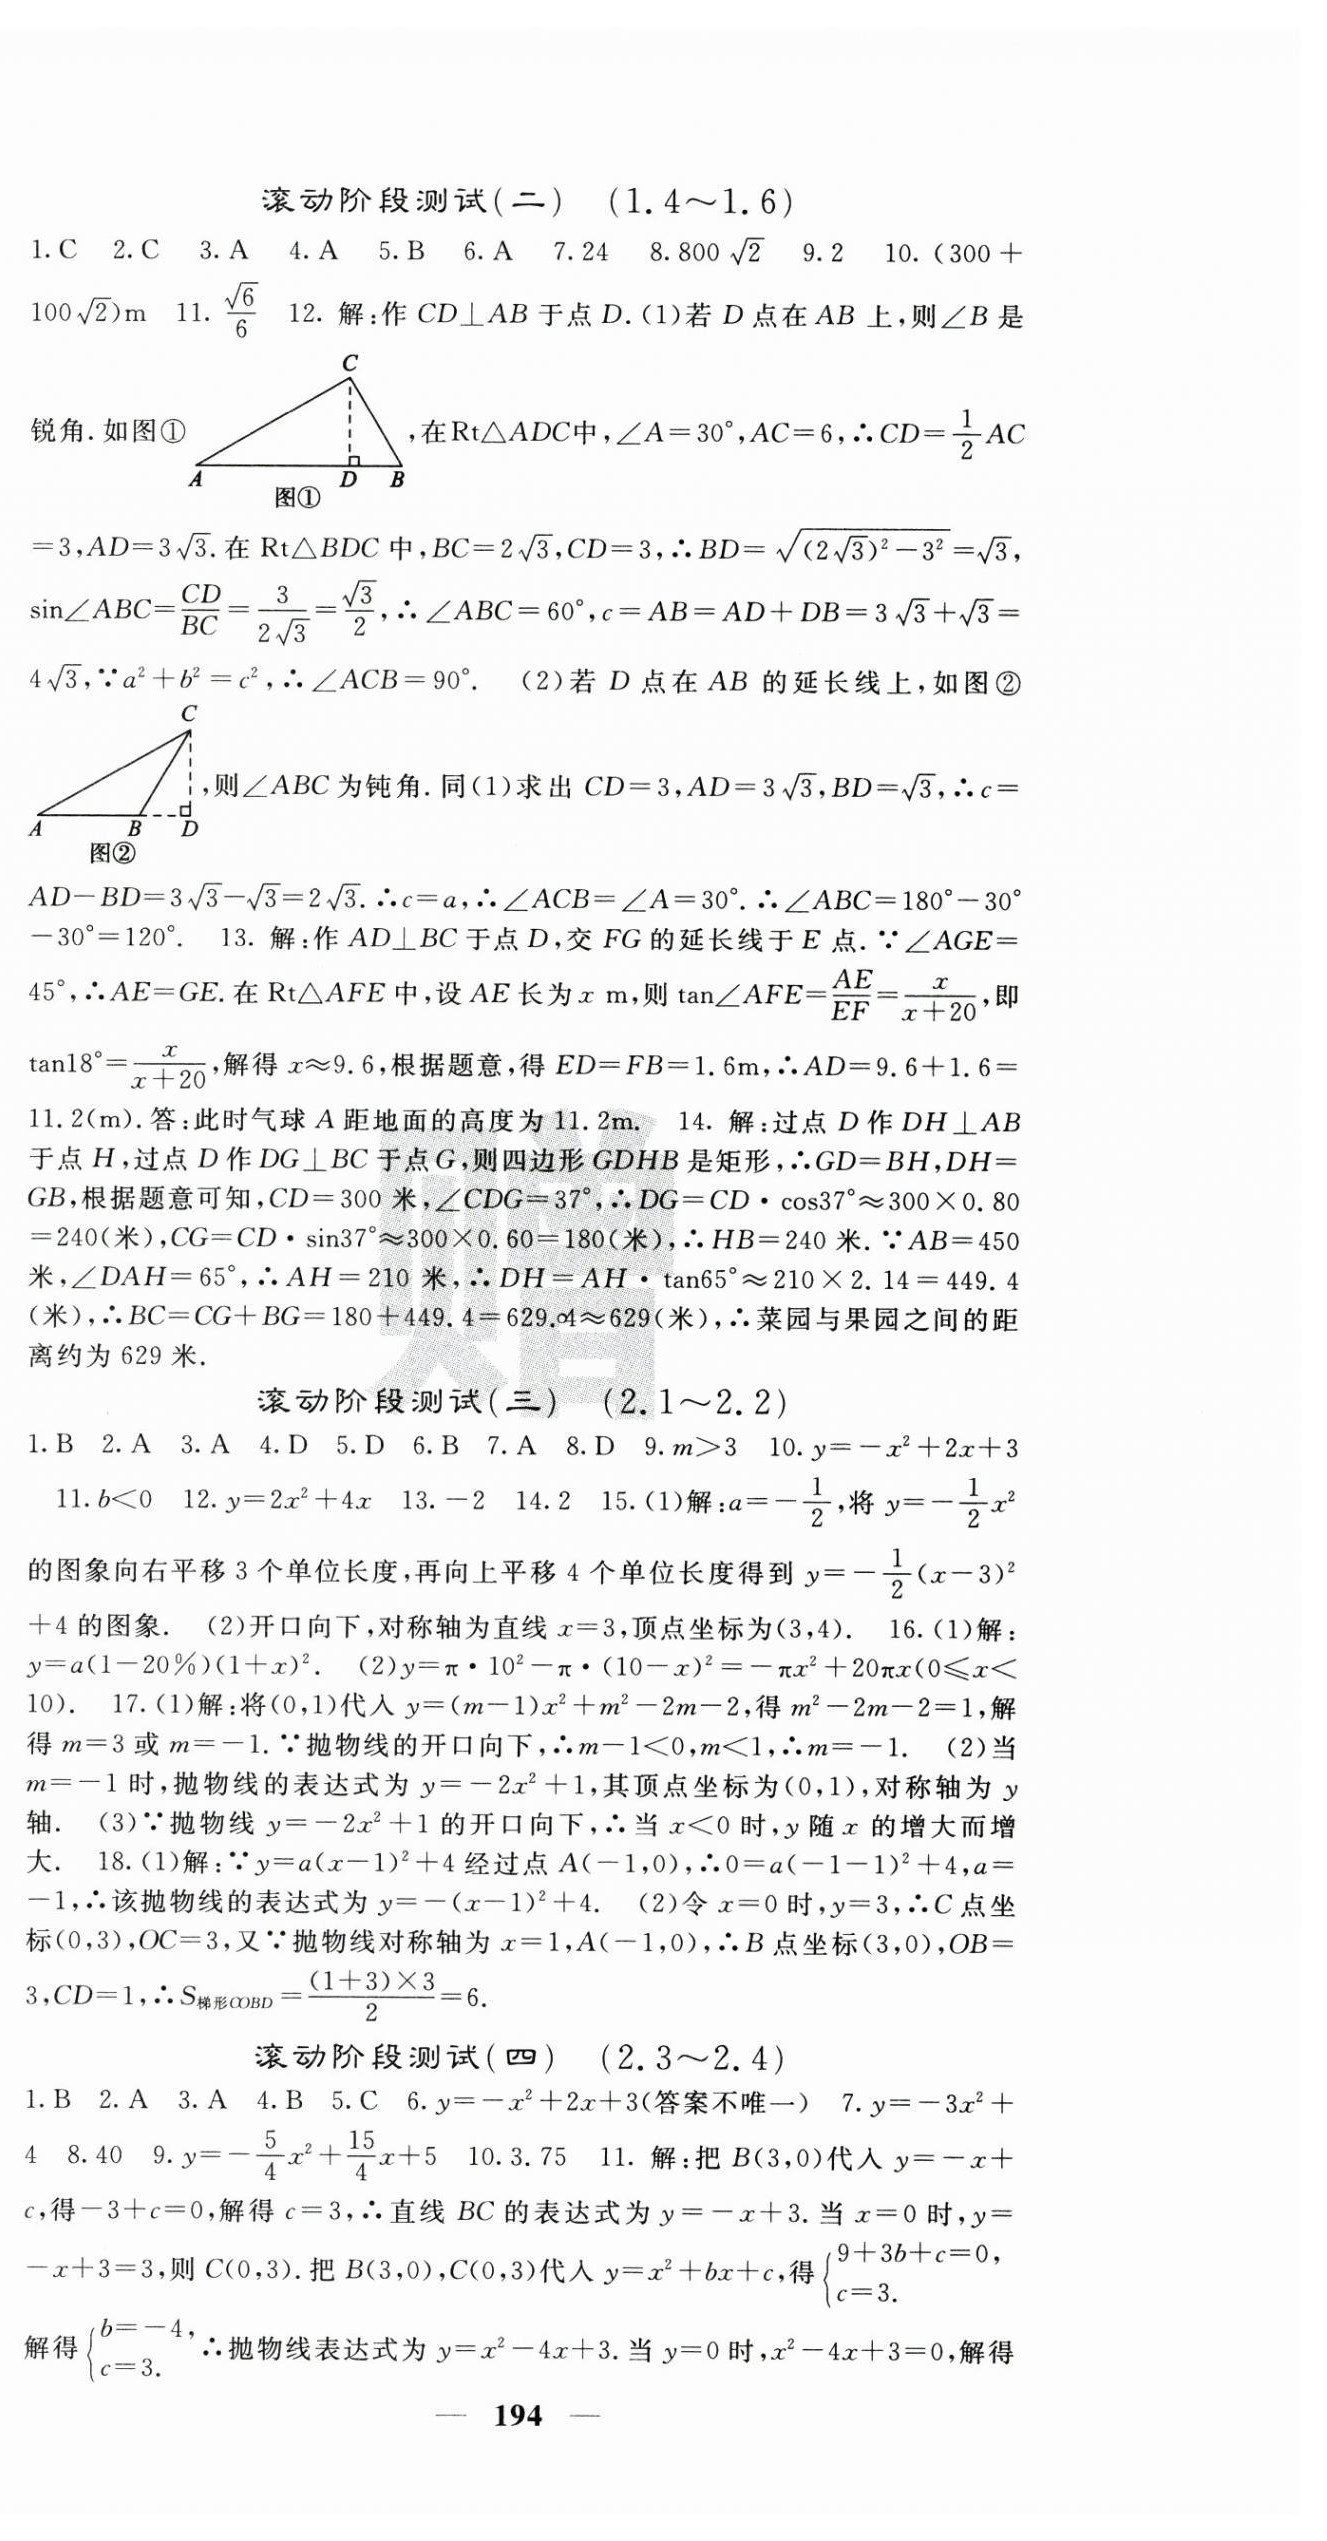 滚动阶段测试(二) (1.4～1.6)
1.C 2.C 3.A 4.A 5.B 6.A 7.24 8.800√2 9.2 10.(300＋
100√2)m 11.√6/6 12.解:作CD⊥AB于点D.(1)若D点在AB上,则∠B是
C
锐角.如图① ,在Rt△ADC中,∠A＝30°,AC＝6,∴CD＝1/2AC
A D B
图①
＝3,AD＝3√3.在Rt△BDC中,BC＝2√3,CD＝3,∴BD＝√((2√3)²－3²)＝√3,
sin∠ABC＝CD/BC＝3/(2√3)＝√3/2,∴∠ABC＝60°,c＝AB＝AD＋DB＝3√3＋√3＝
4√3,∵a²＋b²＝c²,∴∠ACB＝90°. (2)若D点在AB的延长线上,如图②
C
,则∠ABC为钝角.同(1)求出CD＝3,AD＝3√3,BD＝√3,∴c＝
A B D
图②
AD－BD＝3√3－√3＝2√3.∴c＝a,∴∠ACB＝∠A＝30°.∴∠ABC＝180°－30°
－30°＝120°. 13.解:作AD⊥BC于点D,交FG的延长线于E点.∵∠AGE＝
45°,∴AE＝GE.在Rt△AFE中,设AE长为x m,则tan∠AFE＝AE/EF＝x/(x＋20),即
tan18°＝x/(x＋20),解得x≈9.6,根据题意,得ED＝FB＝1.6m,∴AD＝9.6＋1.6＝
11.2(m).答:此时气球A距地面的高度为11.2m. 14.解:过点D作DH⊥AB
于点H,过点D作DG⊥BC于点G,则四边形GDHB是矩形,∴GD＝BH,DH＝
GB,根据题意可知,CD＝300米,∠CDG＝37°,∴DG＝CD·cos37°≈300×0.80
＝240(米),CG＝CD·sin37°≈300×0.60＝180(米),∴HB＝240米.∵AB＝450
米,∠DAH＝65°,∴AH＝210米,∴DH＝AH·tan65°≈210×2.14＝449.4
(米),∴BC＝CG＋BG＝180＋449.4＝629.4≈629(米),∴菜园与果园之间的距
离约为629米.
赠
滚动阶段测试(三) (2.1～2.2)
1.B 2.A 3.A 4.D 5.D 6.B 7.A 8.D 9.m＞3 10.y＝－x²＋2x＋3
11.b＜0 12.y＝2x²＋4x 13.－2 14.2 15.(1)解:a＝－1/2,将y＝－1/2x²
的图象向右平移3个单位长度,再向上平移4个单位长度得到y＝－1/2(x－3)²
＋4的图象. (2)开口向下,对称轴为直线x＝3,顶点坐标为(3,4). 16.(1)解:
y＝a(1－20%)(1＋x)². (2)y＝π·10²－π·(10－x)²＝－πx²＋20πx(0≤x＜
10). 17.(1)解:将(0,1)代入y＝(m－1)x²＋m²－2m－2,得m²－2m－2＝1,解
得m＝3或m＝－1.∵抛物线的开口向下,∴m－1＜0,m＜1,∴m＝－1. (2)当
m＝－1时,抛物线的表达式为y＝－2x²＋1,其顶点坐标为(0,1),对称轴为y
轴. (3)∵抛物线y＝－2x²＋1的开口向下,∴当x＜0时,y随x的增大而增
大. 18.(1)解:∵y＝a(x－1)²＋4经过点A(－1,0),∴0＝a(－1－1)²＋4,a＝
－1,∴该抛物线的表达式为y＝－(x－1)²＋4. (2)令x＝0时,y＝3,∴C点坐
标(0,3),OC＝3,又∵抛物线对称轴为x＝1,A(－1,0),∴B点坐标(3,0),OB＝
3,CD＝1,∴S梯形COBD＝(1＋3)×3/2＝6.
滚动阶段测试(四) (2.3～2.4)
1.B 2.A 3.A 4.B 5.C 6.y＝－x²＋2x＋3(答案不唯一) 7.y＝－3x²＋
4 8.40 9.y＝－5/4x²＋15/4x＋5 10.3.75 11.解:把B(3,0)代入y＝－x＋
c,得－3＋c＝0,解得c＝3,∴直线BC的表达式为y＝－x＋3.当x＝0时,y＝
－x＋3＝3,则C(0,3).把B(3,0),C(0,3)代入y＝x²＋bx＋c,得{9＋3b＋c＝0, c＝3.
解得{b＝－4, c＝3. ∴抛物线表达式为y＝x²－4x＋3.当y＝0时,x²－4x＋3＝0,解得
— 194 —